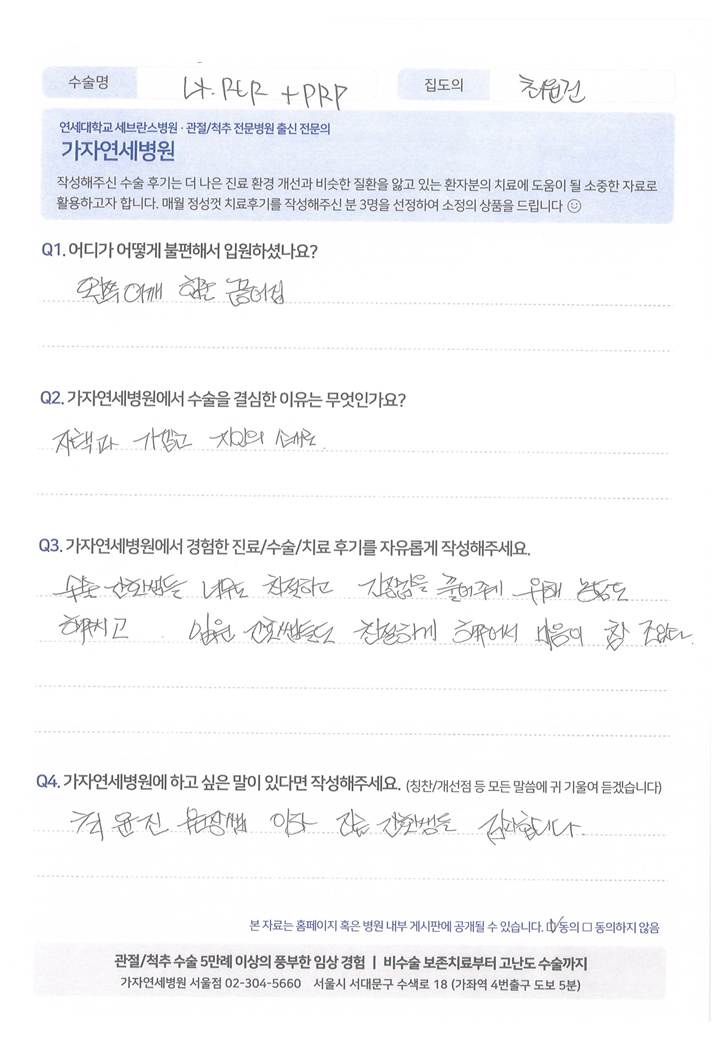 수술명 Lt. RCR + PRP 집도의 최윤진
연세대학교 세브란스병원 · 관절/척추 전문병원 출신 전문의
가자연세병원
작성해주신 수술 후기는 더 나은 진료 환경 개선과 비슷한 질환을 앓고 있는 환자분의 치료에 도움이 될 소중한 자료로
활용하고자 합니다. 매월 정성껏 치료후기를 작성해주신 분 3명을 선정하여 소정의 상품을 드립니다 ☺
Q1. 어디가 어떻게 불편해서 입원하셨나요?
왼쪽어깨 힘줄 끊어짐
Q2. 가자연세병원에서 수술을 결심한 이유는 무엇인가요?
자택과 가깝고 지인의 소개로.
Q3. 가자연세병원에서 경험한 진료/수술/치료 후기를 자유롭게 작성해주세요.
수술 간호쌤들 너무도 친절하고 긴장감을 풀어주기 위해 농담도
해주시고. 입원 간호쌤들도 친절하게 해주어서 마음이 참 좋았다.
Q4. 가자연세병원에 하고 싶은 말이 있다면 작성해주세요. (칭찬/개선점 등 모든 말씀에 귀 기울여 듣겠습니다)
윤진 이하 간호쌤들 감사합니다.
본 자료는 홈페이지 혹은 병원 내부 게시판에 공개될 수 있습니다. ☑동의 ☐ 동의하지 않음
관절/척추 수술 5만례 이상의 풍부한 임상 경험 | 비수술 보존치료부터 고난도 수술까지
가자연세병원 서울점 02-304-5660 서울시 서대문구 수색로 18 (가좌역 4번출구 도보 5분)